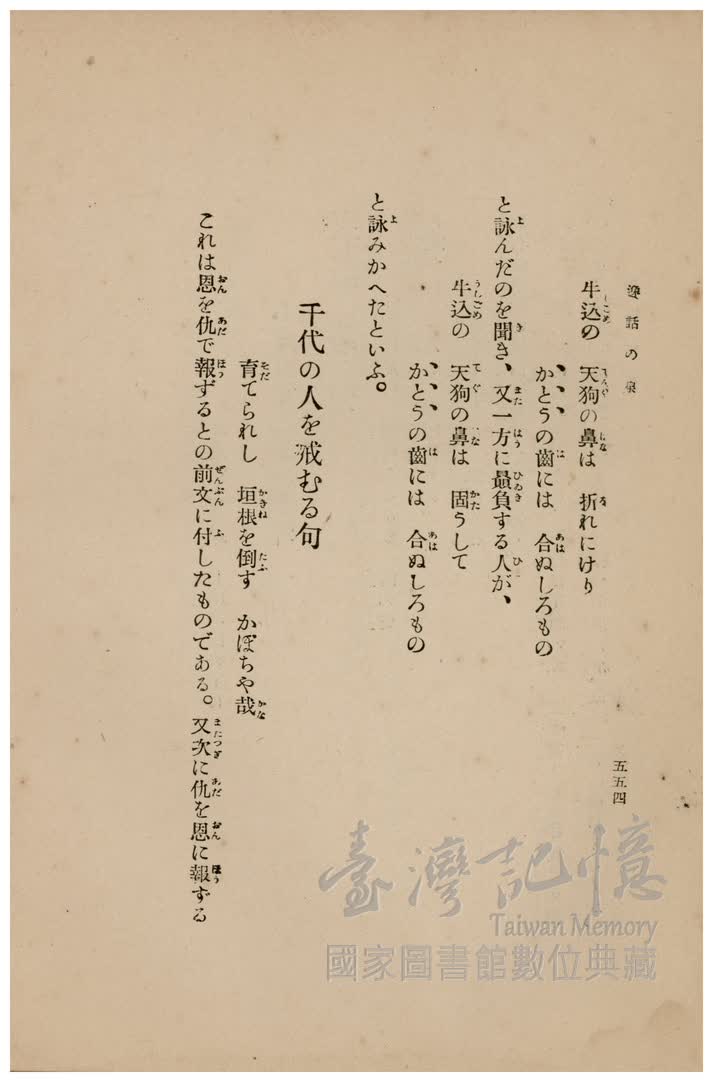 逸話の泉
五五四
牛込の 天狗の鼻は 折れにけり
かとうの齒には 合ぬしろもの
と詠んだのを聞き、又一方に最負する人が、
牛込の 天狗の鼻は 固うして
かとうの齒には 合ぬしろもの
と詠みかへたといふ。
千代の人を戒むる句
育てられし 垣根を倒す かぼちや哉
これは恩を仇で報ずるとの前文に付したものである。又次に仇を恩に報ずる
臺灣記憶
Taiwan Memory
國家圖書館數位典藏